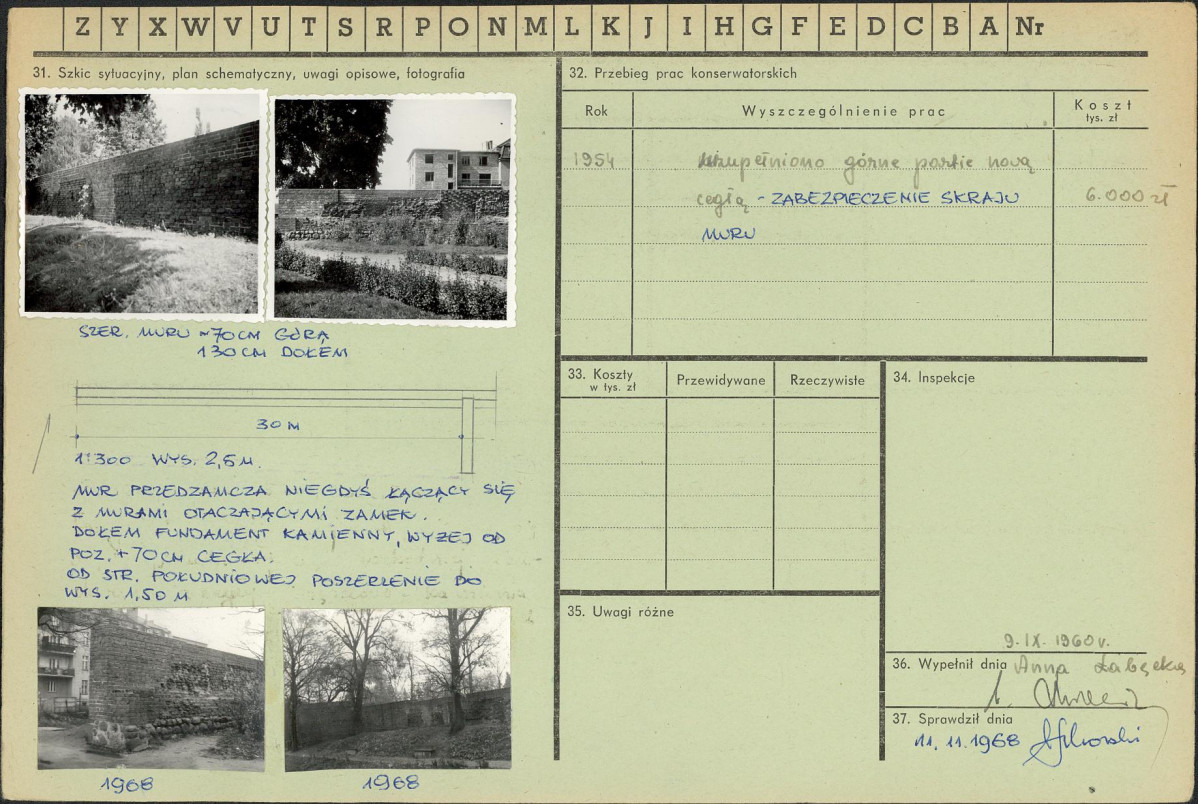 Z Y X W V U T S R P O N M L K J I H G F E D C B A Nr
31. Szkic sytuacyjny, plan schematyczny, uwagi opisowe, fotografia
SZER. MURU ~70CM GÓRĄ
130CM DOŁEM
30 M
1:300 WYS. 2,5M.
MUR PRZEDZAMCZA NIEGDYŚ ŁĄCZĄCY SIĘ
Z MURAMI OTACZAJĄCYMI ZAMEK.
DOŁEM FUNDAMENT KAMIENNY, WYŻEJ OD
POZ. +70CM CEGŁA.
OD STR. POŁUDNIOWEJ POSZERZENIE DO
WYS. 1,50 M
1968
1968
32. Przebieg prac konserwatorskich
Rok
Wyszczególnienie prac
Koszt
tys. zł
1954 Uzupełniono górne partie nową
cegłą - ZABEZPIECZENIE SKRAJU 6.000 zł
MURU
33. Koszty
w tys. zł
Przewidywane
Rzeczywiste
34. Inspekcje
35. Uwagi różne
9.IX.1960r.
36. Wypełnił dnia Anna Łabęcka
37. Sprawdził dnia
11.11.1968